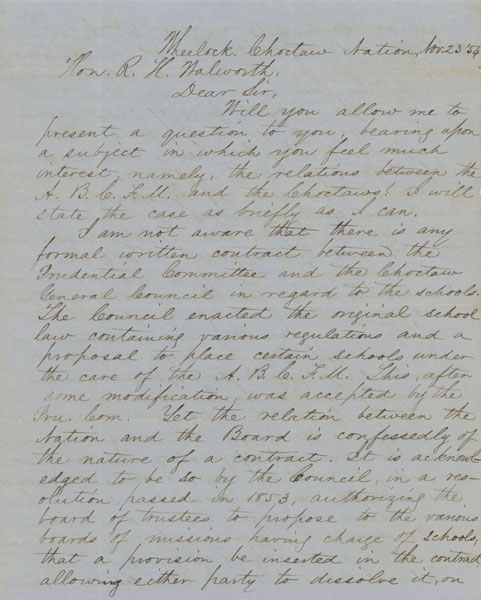 Wheelock. Choctaw Nation, Nov. 23 '54
Hon. R. H. Walworth.
Dear Sir,
Will you allow me to
present a question to you, bearing upon
a subject in which you feel much
interest, namely, the relations between the
A. B. C. F. M. and the Choctaws? I will
state the case as briefly as I can.
I am not aware that there is any
formal written contract between the
Prudential Committee and the Choctaw
General Council in regard to the schools.
The Council enacted the original school
law containing various regulations and a
proposal to place certain schools under
the care of the A. B. C. F. M. This, after
some modification, was accepted by the
Pru. Com. Yet the relation between the
Nation and the Board is confessedly of
the nature of a contract. It is acknowl-
edged to be so by the Council, in a res-
olution passed in 1853, authorizing the
board of trustees to propose to the various
boards of missions having charge of schools,
that a provision be inserted in the contract,
allowing either party to dissolve it, on